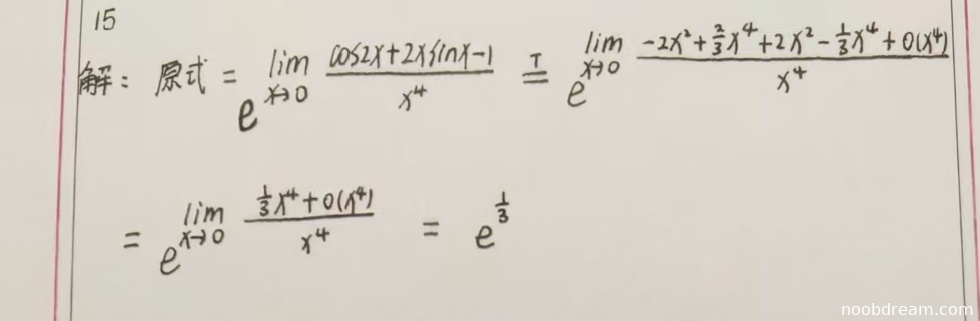 15
解: 原式 = e^{lim_{x→0} \frac{cos2x+2xsinx-1}{x^4}} \overset{T}{=} e^{lim_{x→0} \frac{-2x^2+\frac{2}{3}x^4+2x^2-\frac{1}{3}x^4+o(x^4)}{x^4}}
= e^{lim_{x→0} \frac{\frac{1}{3}x^4+o(x^4)}{x^4}} = e^{\frac{1}{3}}
noobdream.com